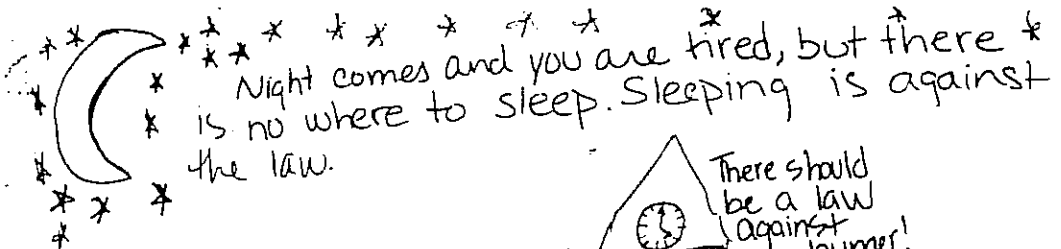 Night comes and you are tired, but there
is no where to sleep. Sleeping is against
the law.
There should
be a law
against